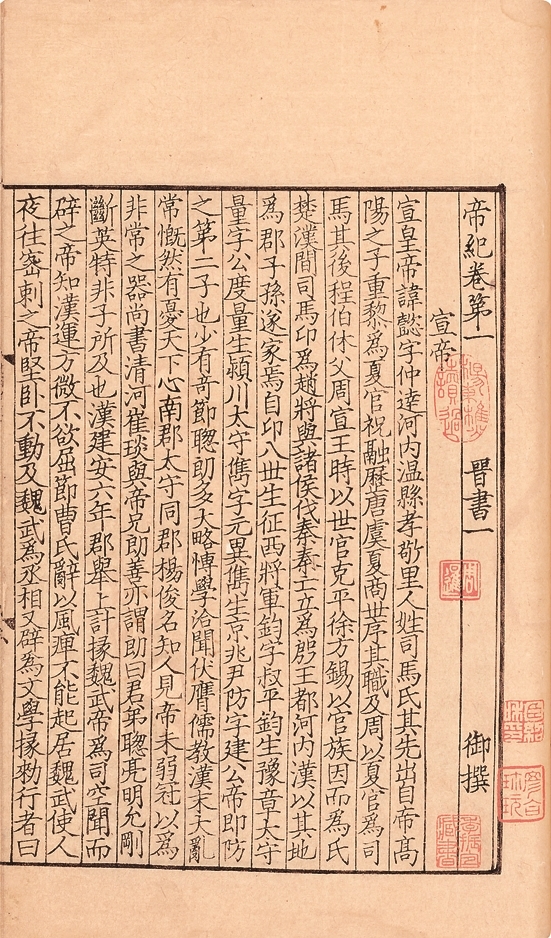 帝紀卷第一　晉書一　御撰
宣帝
宣皇帝諱懿字仲達河内温縣孝敬里人姓司馬氏其先出自帝高
陽之子重黎爲夏官祝融歷唐虞夏商世序其職及周以夏官爲司
馬其後程伯休父周宣王時以世官克平徐方錫以官族因而爲氏
楚漢間司馬卬爲趙將與諸侯伐秦秦亡立爲殷王都河内漢以其地
爲郡子孫遂家焉自卬八世生征西將軍鈞字叔平鈞生豫章太守
量字公度量生潁川太守雋字元異雋生京兆尹防字建公帝即防
之第二子也少有奇節聦朗多大略博學洽聞伏膺儒教漢末大亂
常慨然有憂天下心南郡太守同郡楊俊名知人見帝未弱冠以爲
非常之器尚書清河崔琰與帝兄朗善亦謂朗曰君弟聦亮明允剛
斷英特非子所及也漢建安六年郡舉上計掾魏武帝爲司空聞而
辟之帝知漢運方微不欲屈節曹氏辭以風痺不能起居魏武使人
夜往密刺之帝堅卧不動及魏武爲丞相又辟爲文學掾勑行者曰